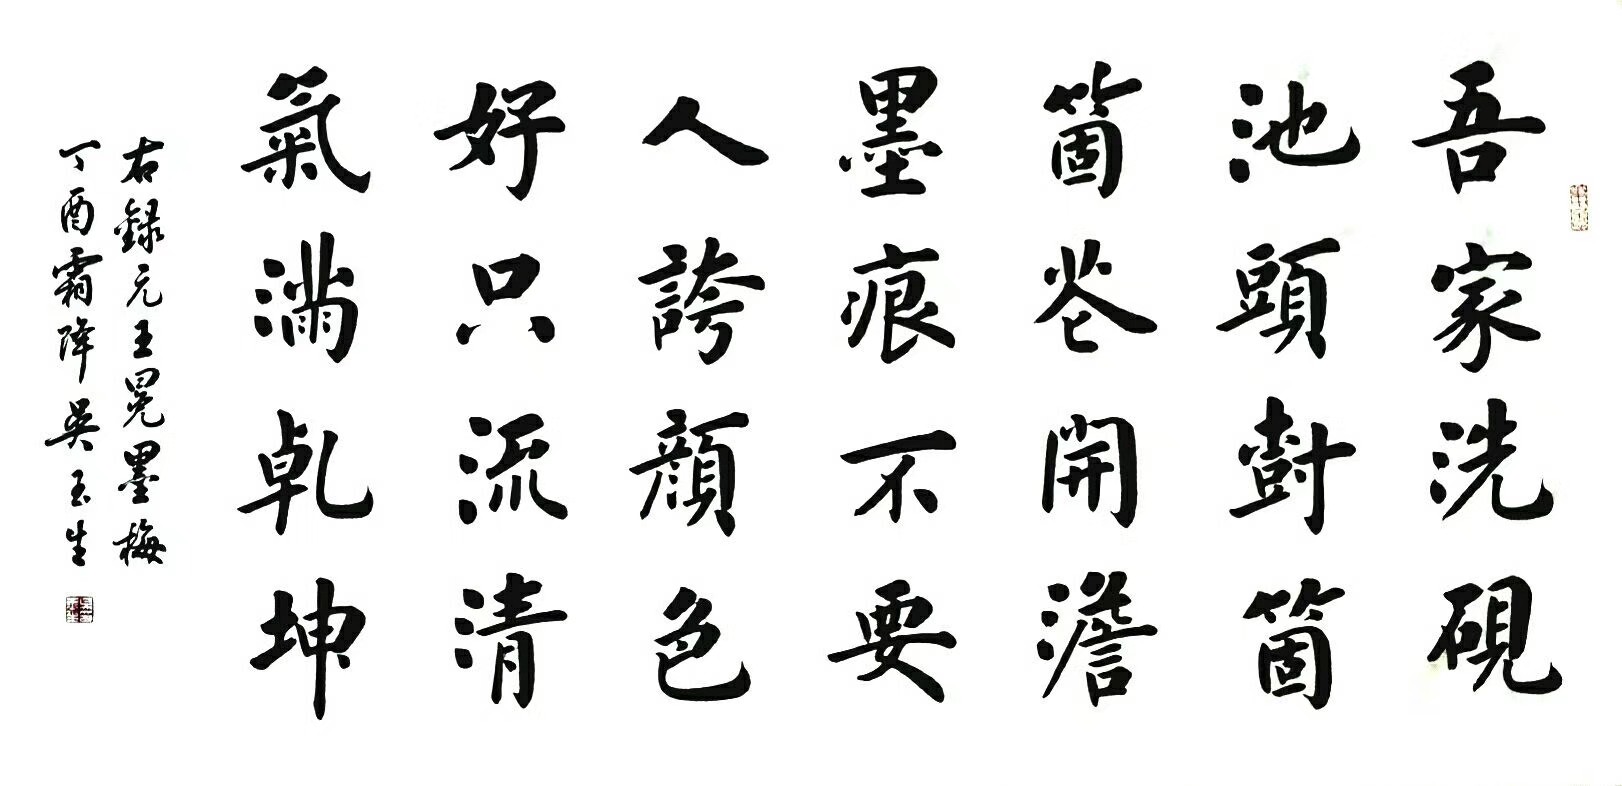 吾家洗硯
池頭尌箇
箇花開澹
墨痕不要
人誇顔色
好只流清
氣滿乹坤
右録元王冕墨梅
丁酉霜降吴玉生